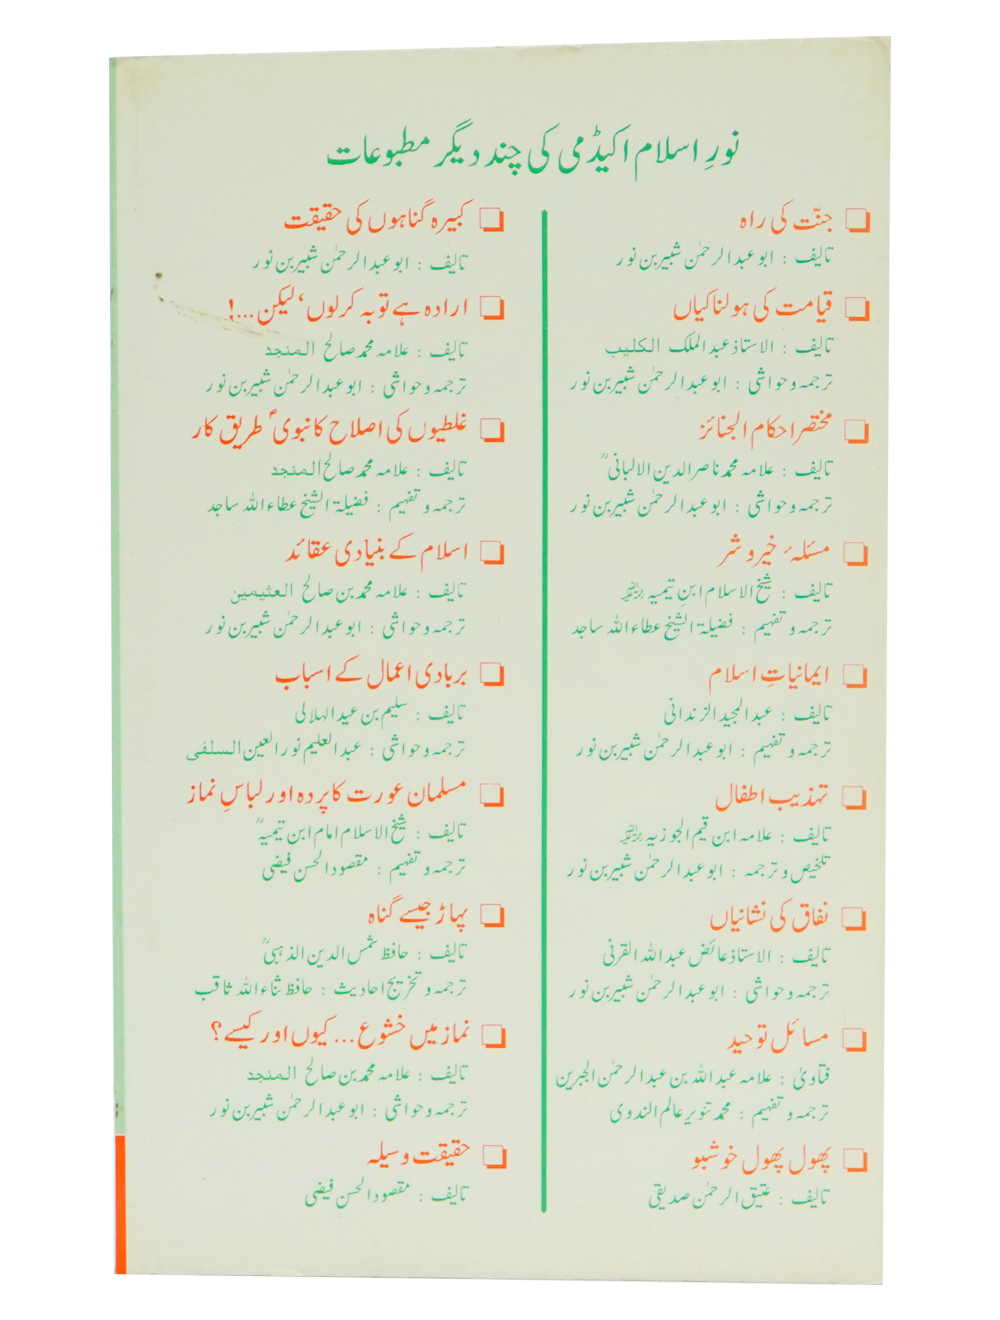 نورِ اسلام اکیڈمی کی چند دیگر مطبوعات
جنّت کی راہ
تالیف : ابو عبد الرحمٰن شبیر بن نور
قیامت کی ہولناکیاں
تالیف : الاستاذ عبد الملک الکلیب
ترجمہ و حواشی : ابو عبد الرحمٰن شبیر بن نور
مختصر احکام الجنائز
تالیف : علامہ محمد ناصر الدین الالبانی ؒ
ترجمہ و حواشی : ابو عبد الرحمٰن شبیر بن نور
مسئلہ خیر و شر
تالیف : شیخ الاسلام ابنِ تیمیہ رحمہ اللہ
ترجمہ و تفہیم : فضیلۃ الشیخ عطاء اللہ ساجد
ایمانیاتِ اسلام
تالیف : عبد المجید الزندانی
ترجمہ و تفہیم : ابو عبد الرحمٰن شبیر بن نور
تہذیب اطفال
تالیف : علامہ ابن قیم الجوزیہ رحمہ اللہ
تلخیص و ترجمہ : ابو عبد الرحمٰن شبیر بن نور
نفاق کی نشانیاں
تالیف : الاستاذ عائض عبد اللہ القرنی
ترجمہ و حواشی : ابو عبد الرحمٰن شبیر بن نور
مسائل توحید
فتاویٰ : علامہ عبد اللہ بن عبد الرحمٰن الجبرین
ترجمہ و تفہیم : محمد تنویر عالم الندوی
پھول پھول خوشبو
تالیف : عتیق الرحمٰن صدیقی
کبیرہ گناہوں کی حقیقت
تالیف : ابو عبد الرحمٰن شبیر بن نور
ارادہ ہے توبہ کر لوں، لیکن...!
تالیف : علامہ محمد صالح المنجد
ترجمہ و حواشی : ابو عبد الرحمٰن شبیر بن نور
غلطیوں کی اصلاح کا نبوی ؐ طریق کار
تالیف : علامہ محمد صالح المنجد
ترجمہ و تفہیم : فضیلۃ الشیخ عطاء اللہ ساجد
اسلام کے بنیادی عقائد
تالیف : علامہ محمد بن صالح العثیمین
ترجمہ و حواشی : ابو عبد الرحمٰن شبیر بن نور
بربادی اعمال کے اسباب
تالیف : سلیم بن عید الہلالی
ترجمہ و حواشی : عبد العلیم نور العین السلفی
مسلمان عورت کا پردہ اور لباسِ نماز
تالیف : شیخ الاسلام امام ابن تیمیہ ؒ
ترجمہ و تفہیم : مقصود الحسن فیضی
پہاڑ جیسے گناہ
تالیف : حافظ شمس الدین الذہبی ؒ
ترجمہ و تخریج احادیث : حافظ ثناء اللہ ثاقب
نماز میں خشوع... کیوں اور کیسے؟
تالیف : علامہ محمد بن صالح المنجد
ترجمہ و حواشی : ابو عبد الرحمٰن شبیر بن نور
حقیقت وسیلہ
تالیف : مقصود الحسن فیضی